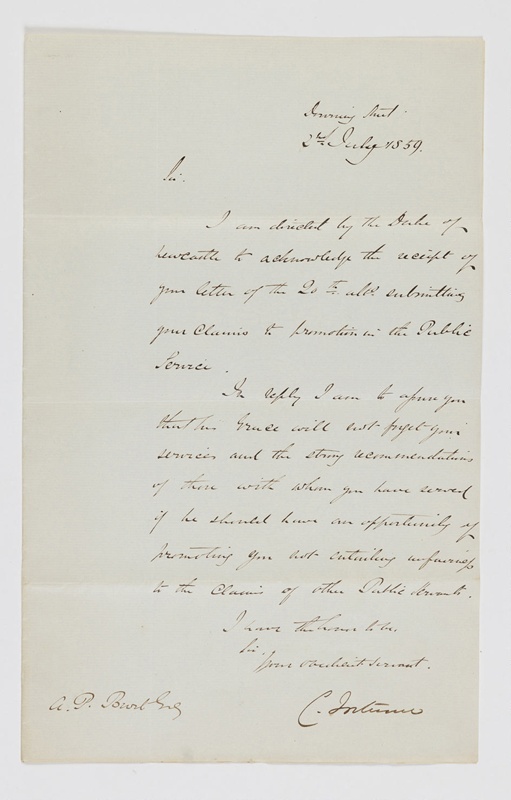 Downing Street
2nd July 1859.
Sir.
I am directed by the Duke of
Newcastle to acknowledge the receipt of
your letter of the 20th ulto. submitting
your claims to promotion in the Public
Service.
In reply I am to assure you
that his Grace will not forget your
services and the strong recommendations
of those with whom you have served
if he should have an opportunity of
promoting you not entailing unfairness
to the claims of other Public Servants.
I have the honor to be,
Sir,
Your obedient servant.
C. Fortescue
A. P. Esq